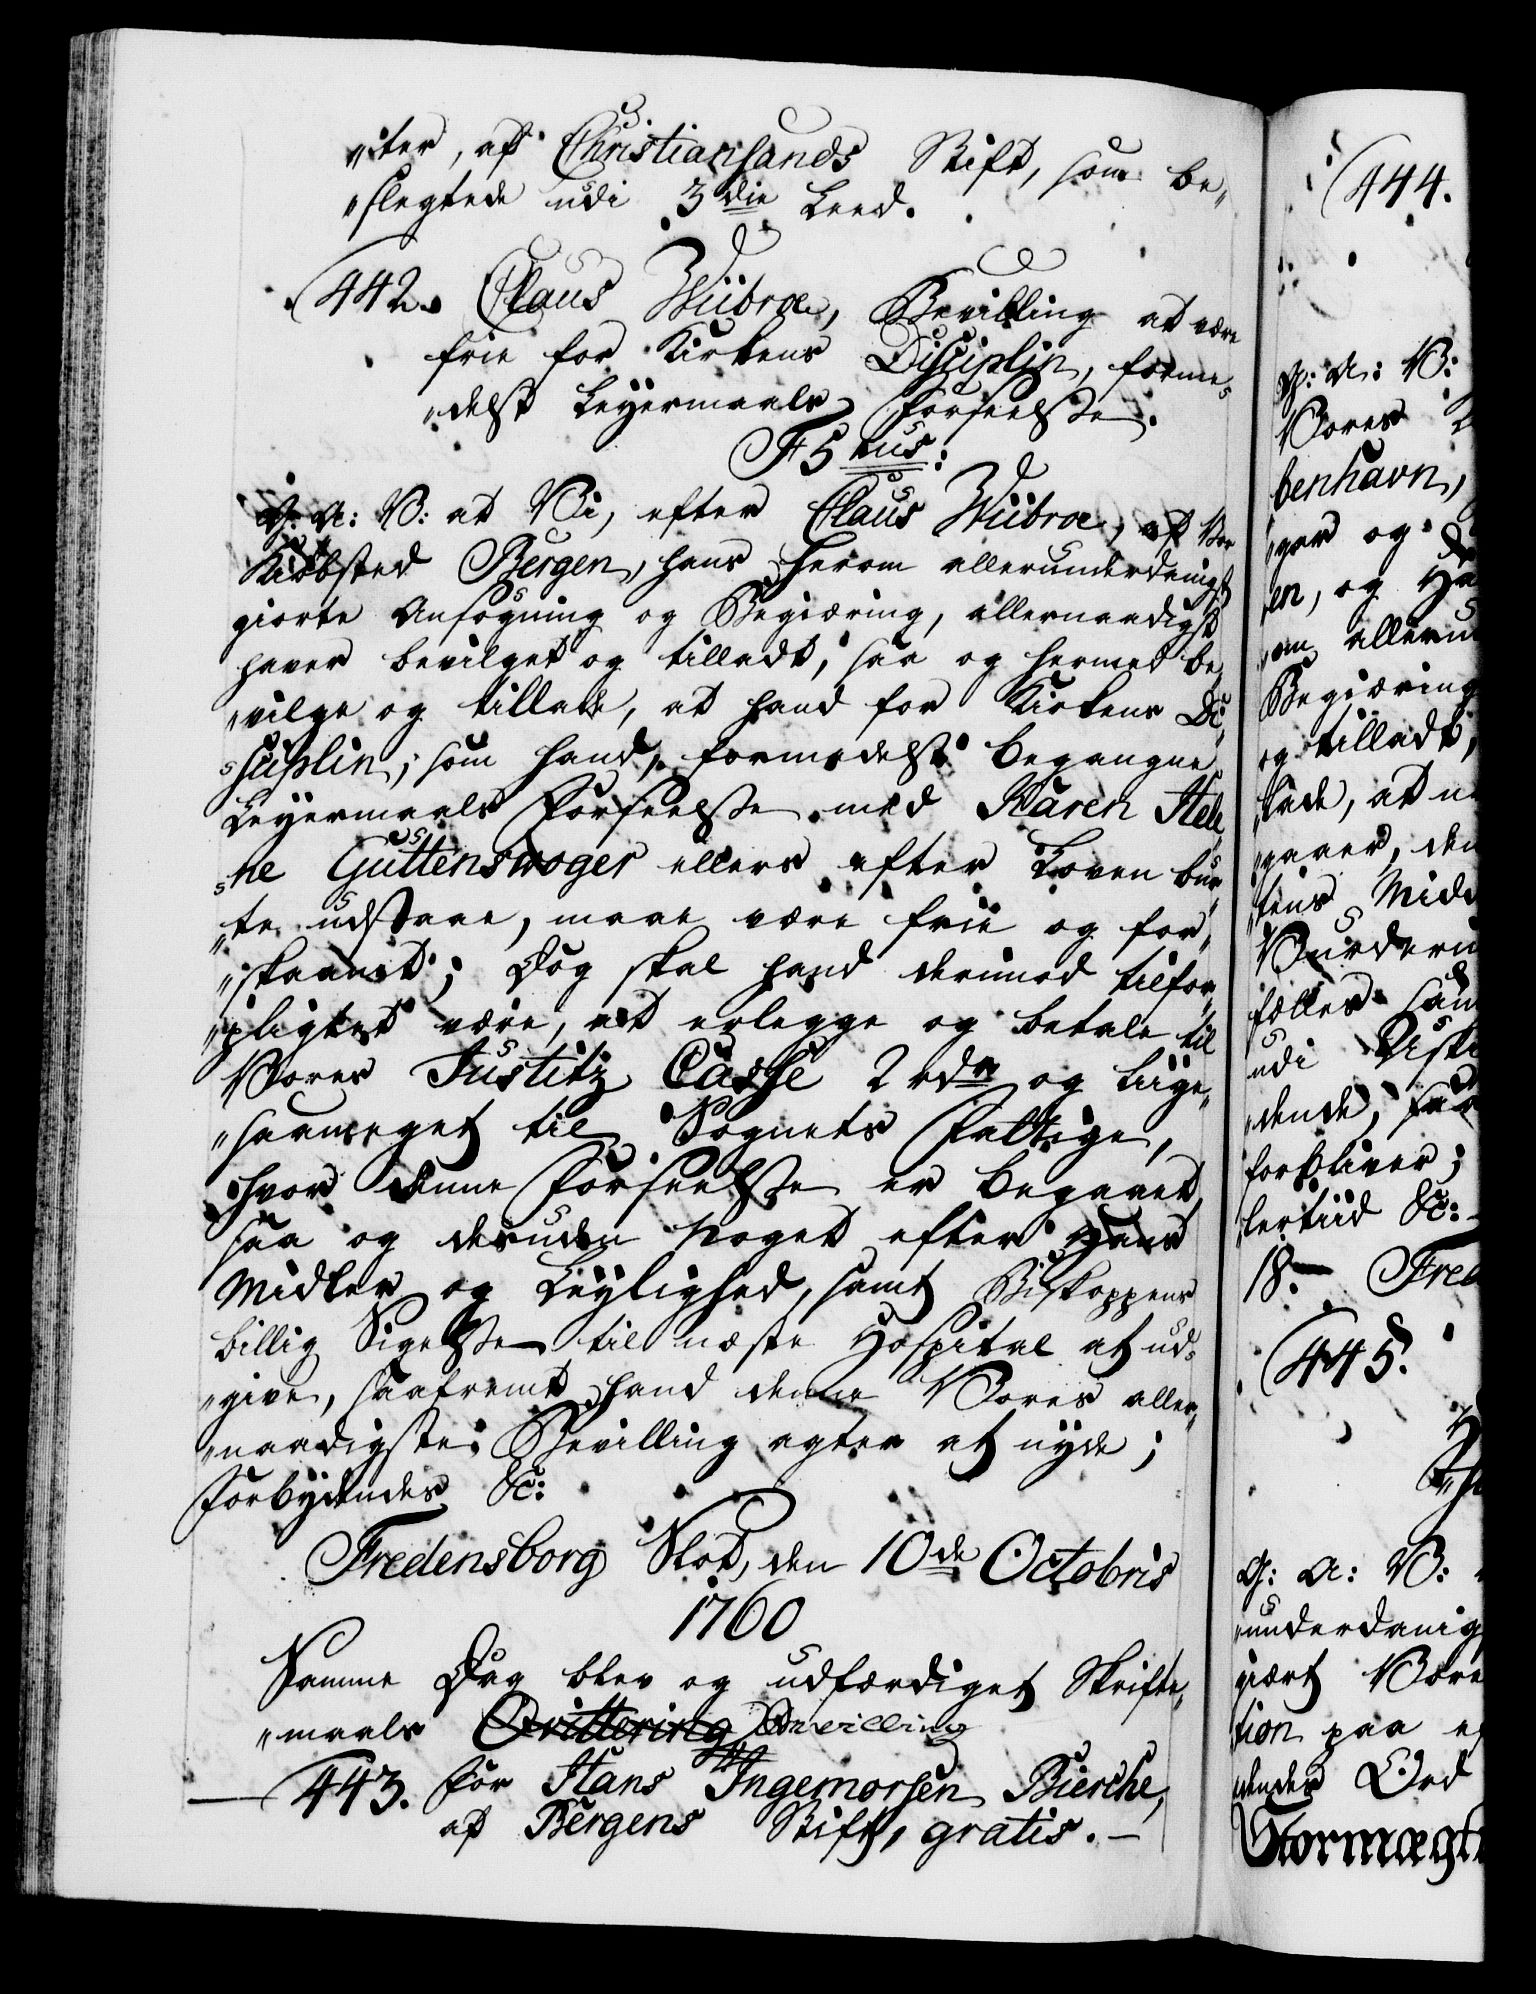 "ter, af Christiansands Stift, som be,,
"slegtede udi 3die Leed.
442. Claus Wiibroe, Bevilling at være
frie for Kirkens Disciplin, forme,,
"delst Leyermaals Forseelse.
F5 tus:
G: A: V: at Vi, efter Claus Wiibroe, af Vor
Kiøbsted Bergen, hans herom allerunderdanigst
giorte Ansøgning og Begiæring, allernaadigst
haver bevilget og tilladt, saa og hermed be,,
"vilge og tillade, at hand for Kirkens Di,,
"sciplin, som hand, formedelst begangne
Leyermaals Forseelse med Karen Hele,,
"ne Guttenswoger ellers efter Loven bur,,
"te udstaae, maae være frie og for,,
"skaanet; Dog skal hand derimod tilfor,,
"pligtet være, at erlegge og betale til
Vores Justitz Casse 2 rdr og liige,,
"saameget til Sognets Fattige,
hvor denne Forseelse er begaaet,
saa og desuden noget efter Hans
Midler og Leylighed, samt Biskoppens
billig Sigelse til næste Hospital at ud,,
"give, saafremt hand denne Vores aller,,
"naadigste Bevilling agter at nyde;
Forbydendes &c:
Fredensborg Slot, den 10de Octobris
1760
Samme Dag blev og udfærdiget Skrifte,,
"maals Qvittering Bevilling
443. for Hans Ingemorsen Bierche,
af Bergens Stift, gratis. —
444.
G: A: V:
Vores
benhavn,
"ger og
sen, og
"om allerun
Begiæring
og tilladt,
"lade, at
"gaaer, den
"tens Midd
Vurderin
fælles
udi Skif
"dende,
forbliver;
"lertiid &c: —
18. — Fred
445.
G: A: V:
"underdanig
giort Vores
tion paa
"endes Ord
Stormægt